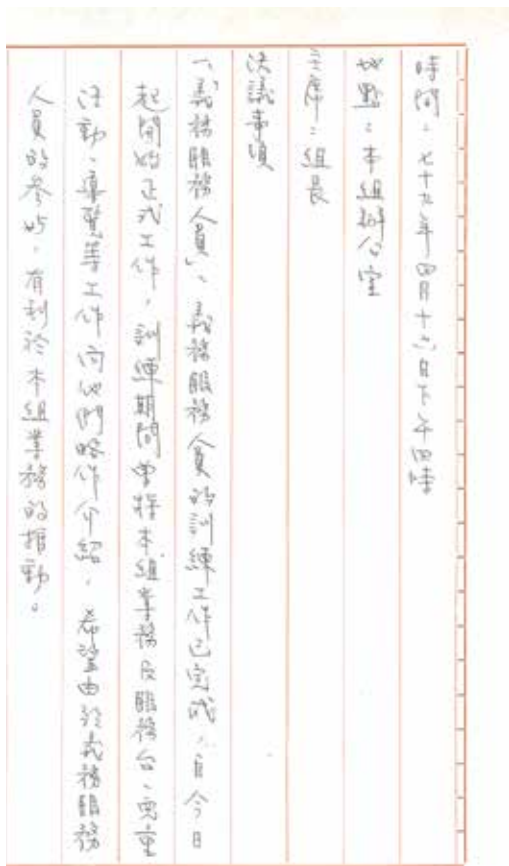 時間：七十九年四月十六日下午四時
地點：本組辦公室
主席：組長
決議事項
一、「義務服務人員」、義務服務人員的訓練工作已完成，自今日
起開始正式工作，訓練期間曾將本組業務及服務台、兒童
活動、導覽等工作向他們略作介紹，希望由於義務服務
人員的參與，有利於本組業務的推動。